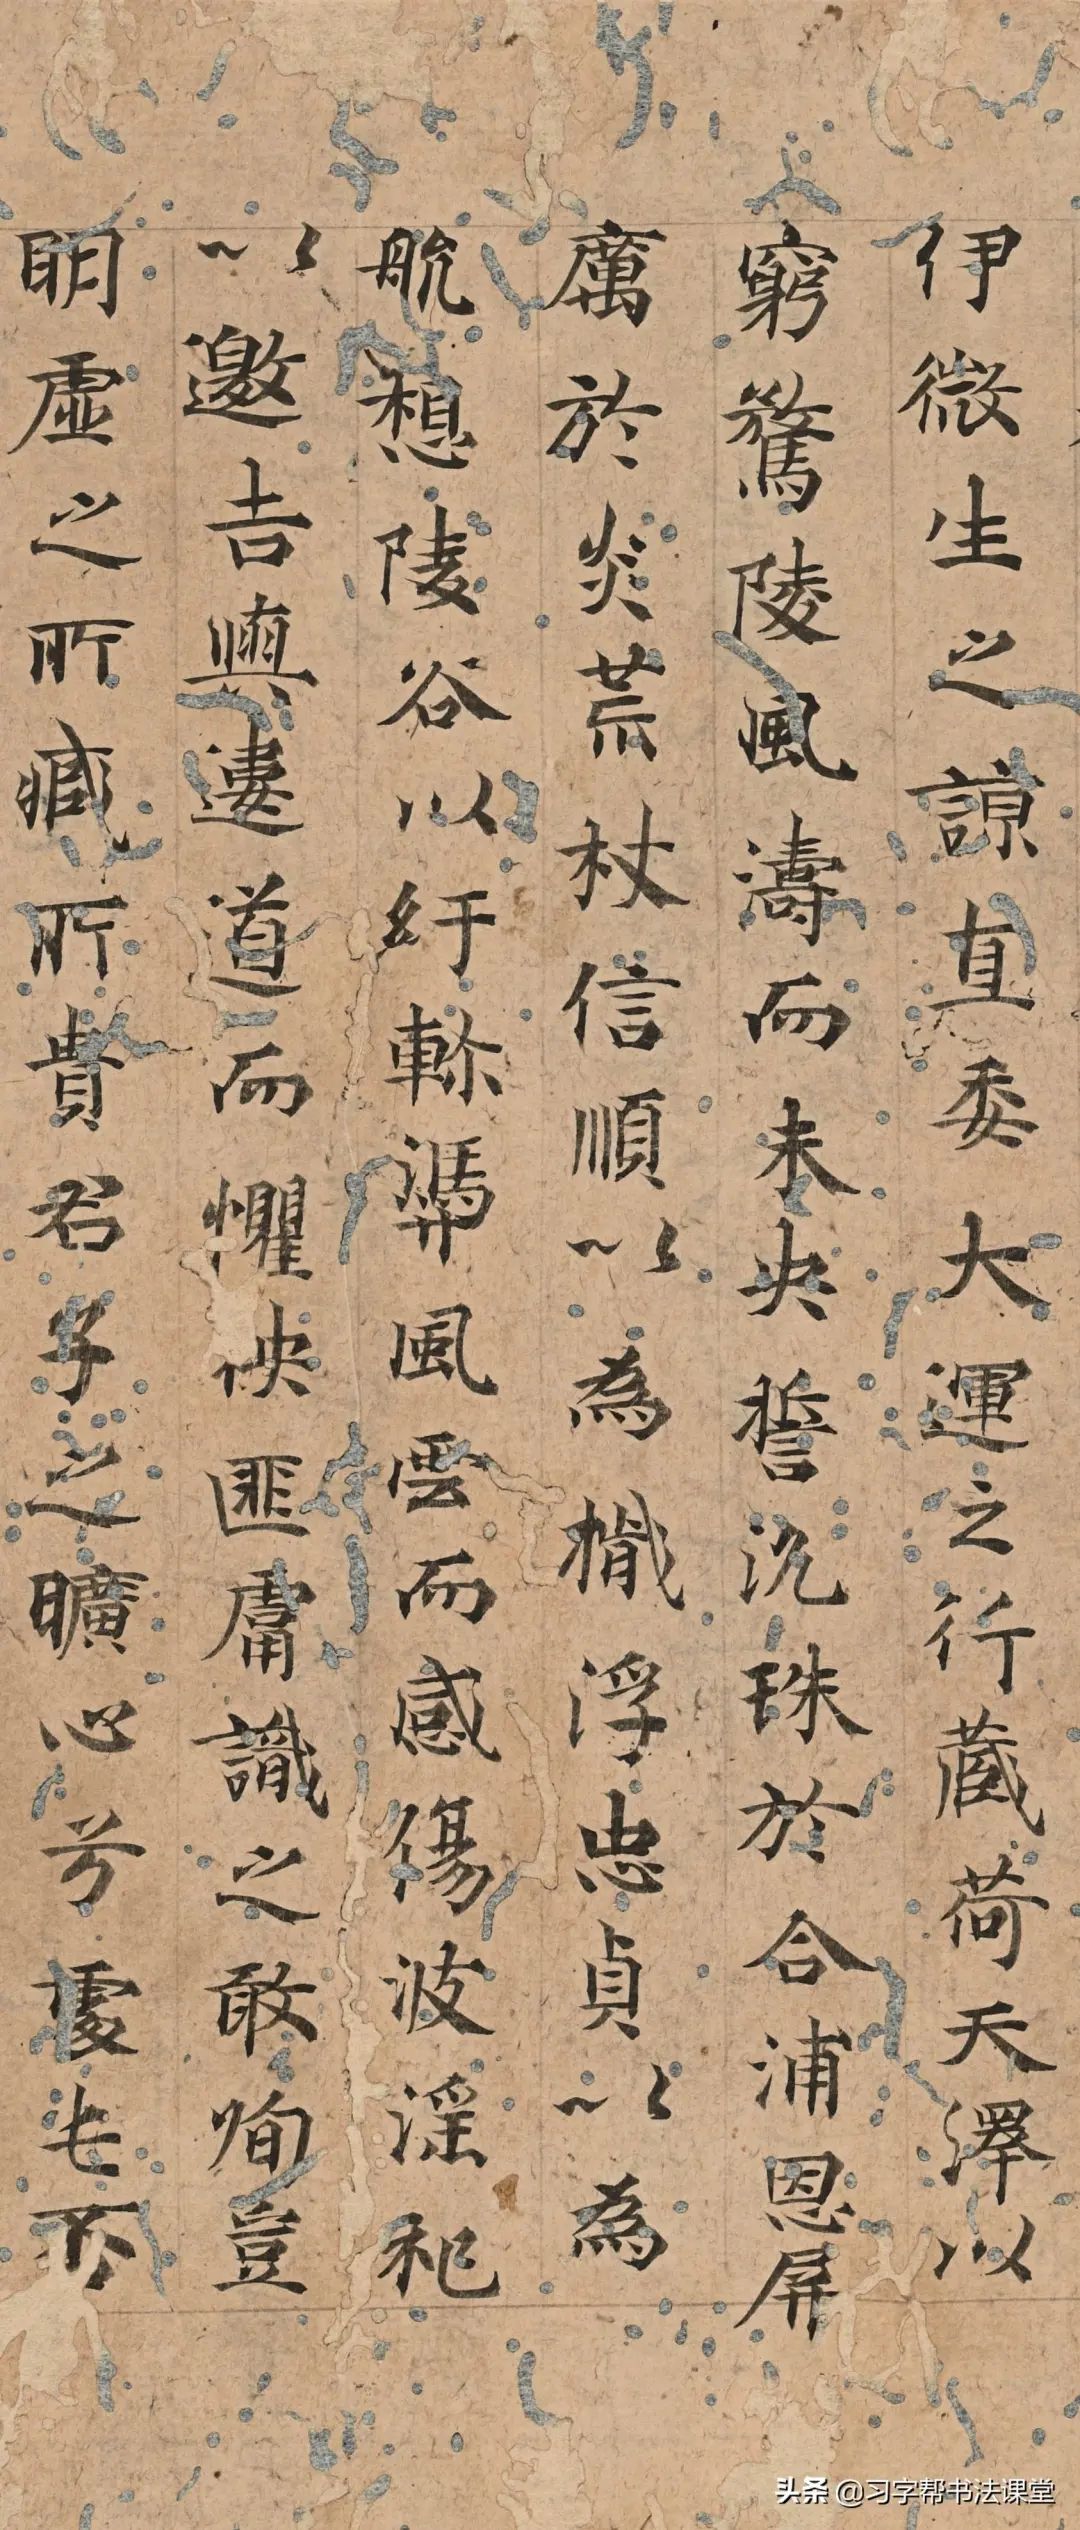 伊微生之諒直委大運之行蔵荷天澤以
窮驁陵風濤而未央誓沉珠於合浦恩屏
厲於炎荒杖信順以為檝浮忠貞以為
航想陵谷以紆軫馮風雲而感傷波淫祀
以邀吉輿遺道而懼怏匪膚識之敢詢豈
明虛之所臧所貴君子之曠心兮處屯而
头条 @习字帮书法课堂